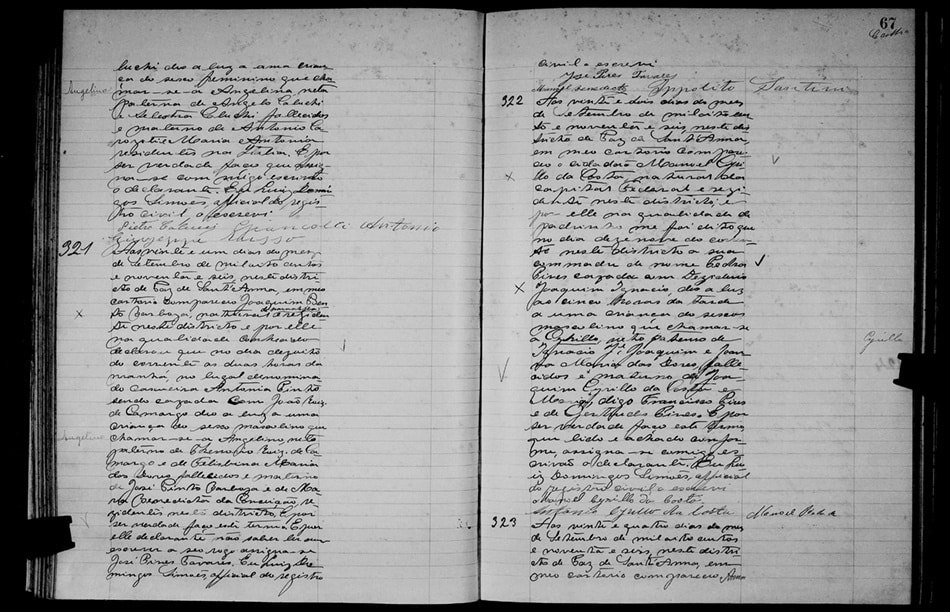 luchi deo a luz a uma crian-
ça do sexo feminino que cha
mar-se-a Angelina neta
Angelina
paterna de Angelo Caluchi
e fallecidos
e materna de Antonio Ca
e Maria Antonia
residentes na Italia. E por
ser verdade faço que assig
na-se commigo escrivão
o declarante. Eu Luiz Domin
gos Simões, official do regis-
tro civil o escrevi
Antonio
321
Aos vinte e um dias do mez
de Setembro de mil oito centos
e noventa e seis, neste distri
cto de Paz de Sant'Anna, em meo
cartorio compareceo Joaquim Pin
to Barboza, natural e residen
te neste districto e por elle
na qualidade de
declarou que no dia dezoito
do corrente as duas horas da
manhã, no lugar denomina
do Antonia Pinto
sendo cazada com João Ruiz
de Camargo deo a luz a uma
criança do sexo masculino que
chamar-se-a Angelino, neto
Angelino
paterno de Ruiz de Ca
margo e de Felisbina Maria
das Dores, fallecidos e materno
de José Pinto Barboza e de Ma
ria Benedicta da Conceição, re
zidentes neste districto. E por
ser verdade faço este termo. E por
elle declarante não saber ler nem
escrever a seo rogo assigna-se
José Pires Tavares. Eu Luiz Do
mingos Simões, official do registro
67
civil o escrevi
José Pires Tavares
Manoel Benedicto Ippolito Santini
322
Aos vinte e dois dias do mez
de Setembro de mil oito cen
tos e noventa e seis neste dis
tricto de Paz de Sant'Anna,
em meo cartorio compare
ceo o cidadão Manoel Cyril
lo da Costa, natural da
capital Federal e rezi
dente neste districto e
por elle na qualidade de
padrinho me foi dito que
no dia dezenove do corren
te neste districto a sua
commadre de nome
Pires cazada com
Joaquim Ignacio deo a luz
as cinco horas da tarde
a uma criança do sexo
masculino que chamar-se
a Cyrillo, neto paterno de
Cyrillo
Ignacio Joaquim e Joan
na Maria das Dores, falle
cidos e materno de Joa
quim Cyrillo da Costa e
Maria, digo Francisco Pires
e de Gertrudes Pires. E por
ser verdade faço este termo
que lido e achado confor
me, assigna-se commigo es
crivão o declarante. Eu Lu
iz Domingos Simões, official
do registro civil o escrevi
Manoel Cyrillo da Costa
Cyrillo da Costa Manoel
323
Aos vinte e quatro dias do mez
de Setembro de mil oito centos
e noventa e seis, neste distri
cto de Paz de Sant'Anna, em
meo cartorio compareceo